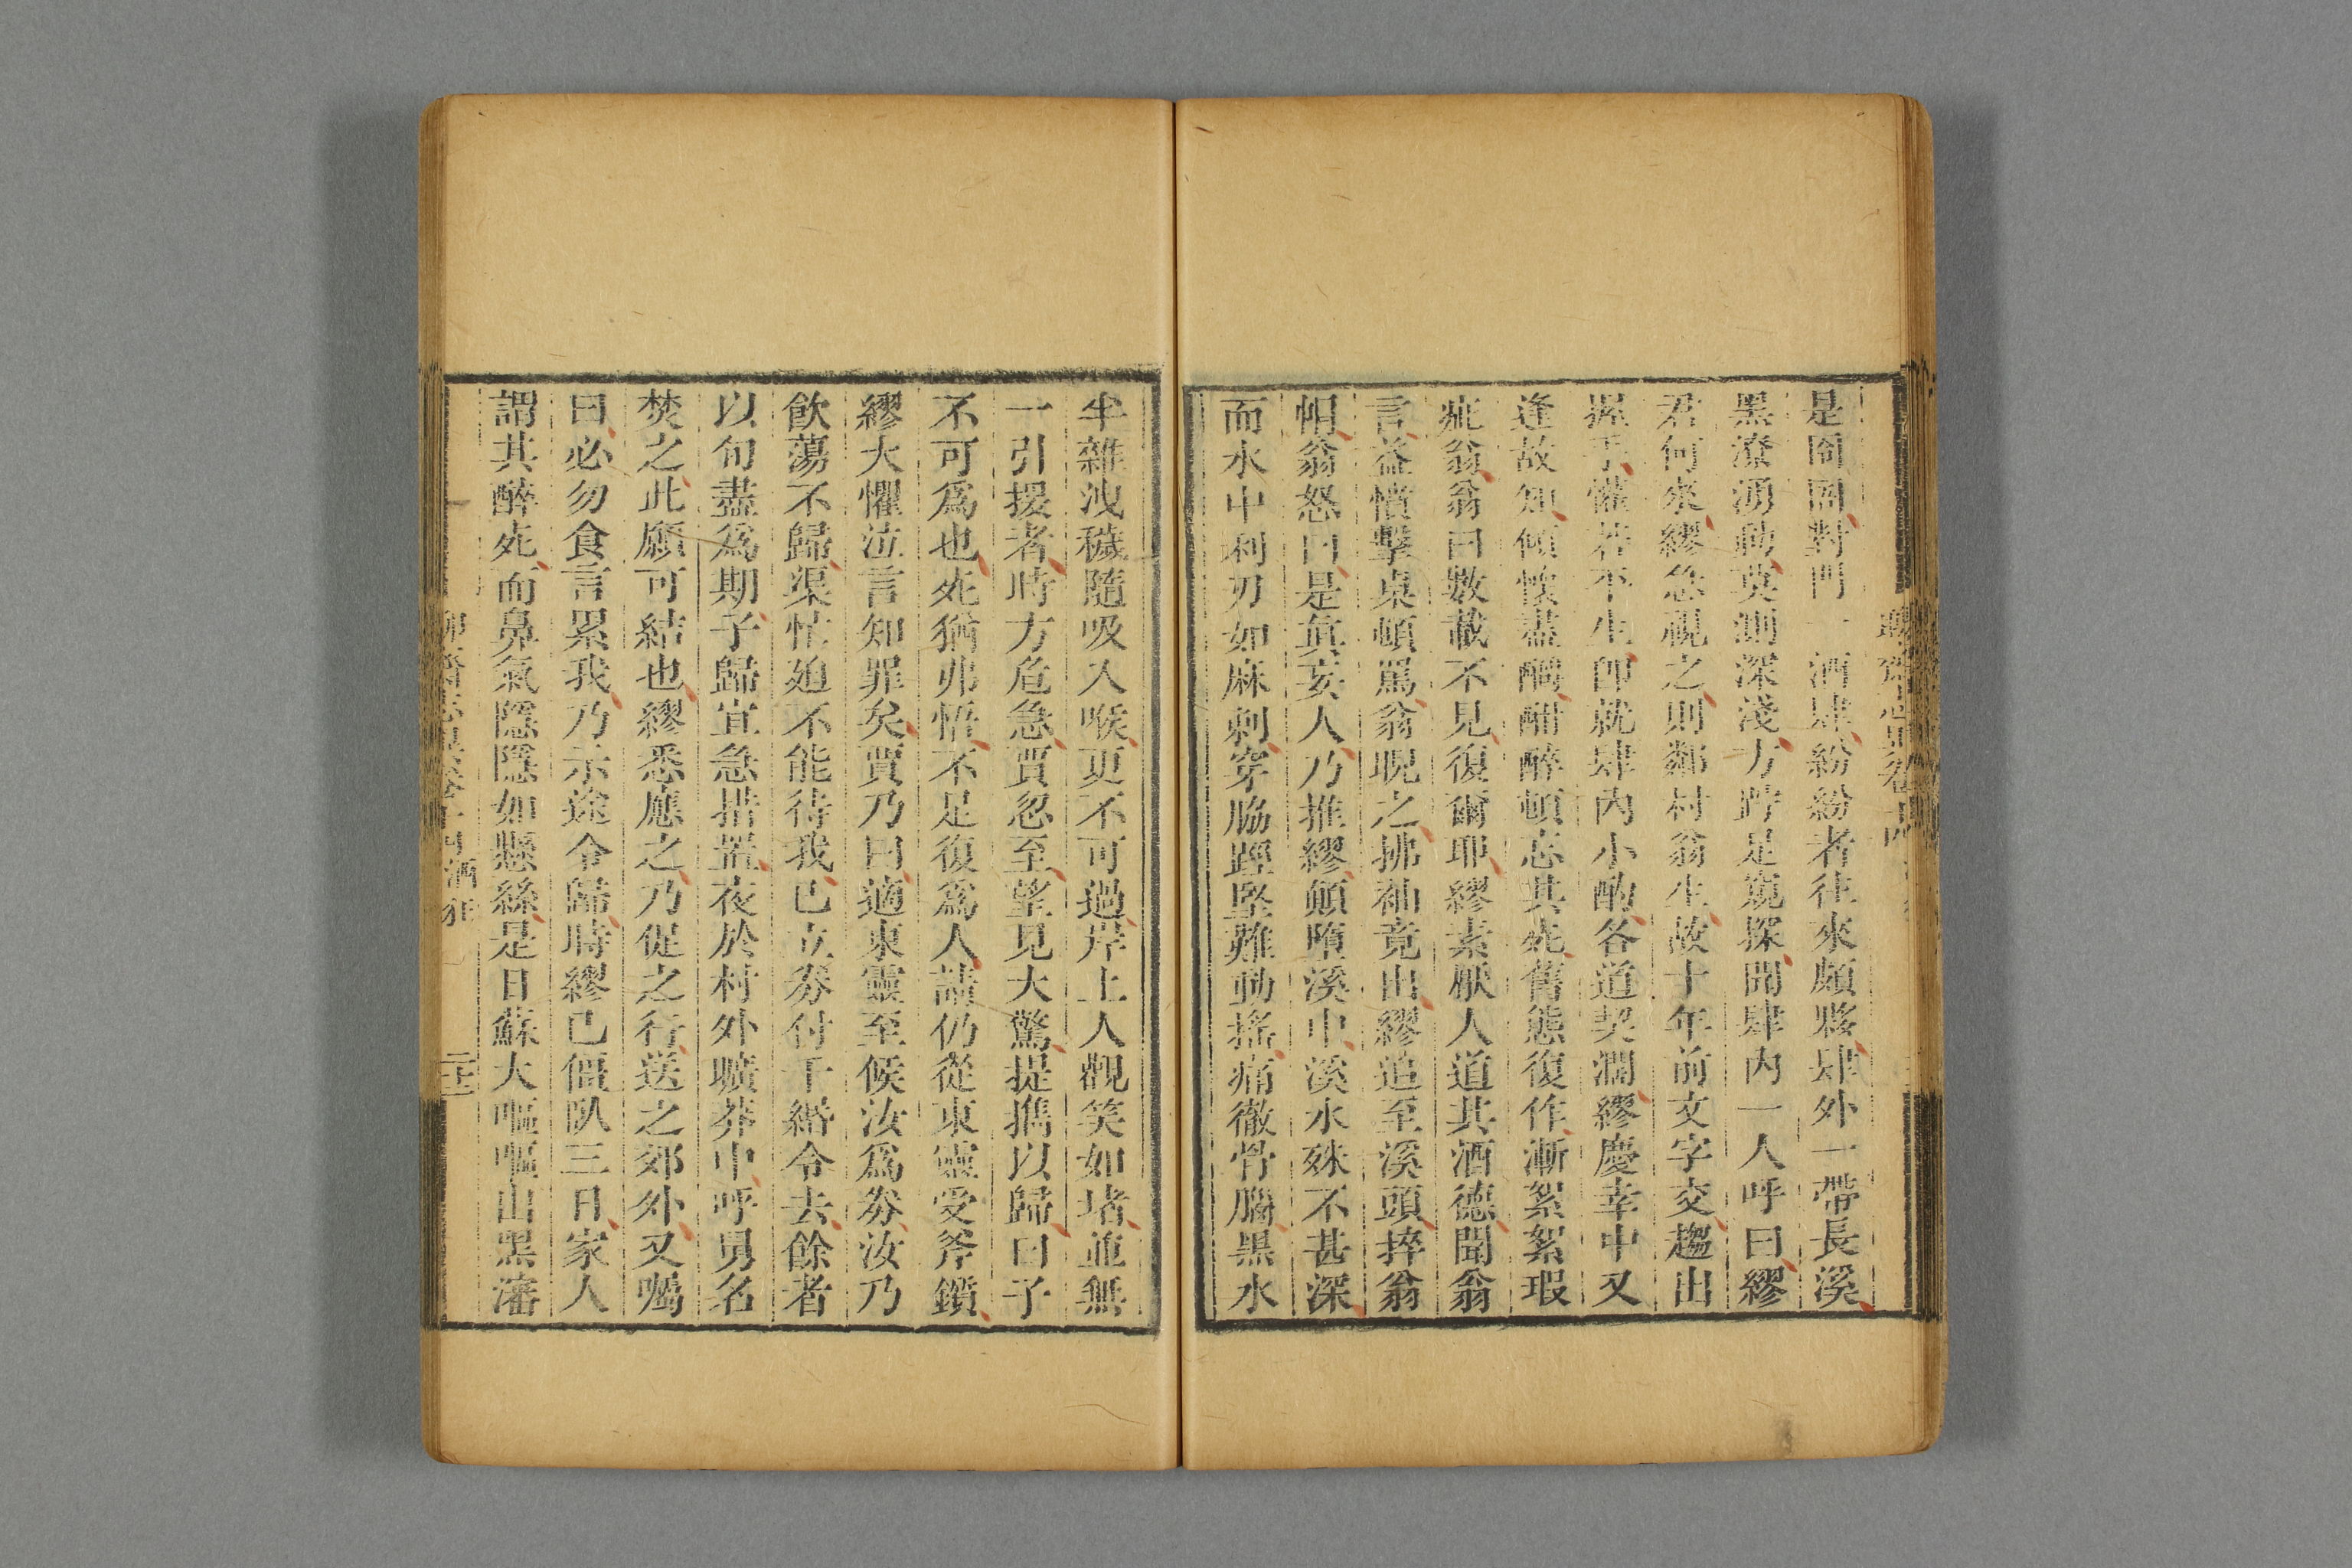 是囹圄對門一酒肆紛紛者往來頗夥肆外一帶長溪
黑潦湧動莫測深淺方跨足窺探聞肆內一人呼曰繆
君何來繆急視之則鄰村翁生故十年前文字交趨出
握手懽若平生即就肆內小酌各道契濶繆慶幸中又
逢故知傾懷盡釂酣醉頓忘其死舊態復作漸絮絮瑕
疵翁翁曰數載不見復爾耶繆素厭人道其酒德聞翁
言益憤擊桌頓罵翁睨之拂袖竟出繆追至溪頭捽翁
帽翁怒曰是眞妄人乃推繆顛墮溪中溪水殊不甚深
而水中利刃如麻刺穿脇脛堅難動搖痛徹骨腦黑水
半雜溲穢隨吸入喉更不可過岸上人觀笑如堵並無
一引援者時方危急賈忽至望見大驚提擕以歸曰子
不可爲也死猶弗悟不足復爲人請仍從東靈受斧鑕
繆大懼泣言知罪矣賈乃曰適東靈至候汝爲劵汝乃
飲蕩不歸渠忙廹不能待我已立劵付千緡令去餘者
以旬盡爲期子歸宜急措置夜於村外曠莽中呼舅名
焚之此願可結也繆悉應之乃促之行送之郊外又囑
曰必勿食言累我乃示途令歸時繆已僵臥三日家人
謂其醉死而鼻氣隱隱如懸絲是日蘇大嘔嘔出黑瀋
聊齋志異卷十四 酒狂